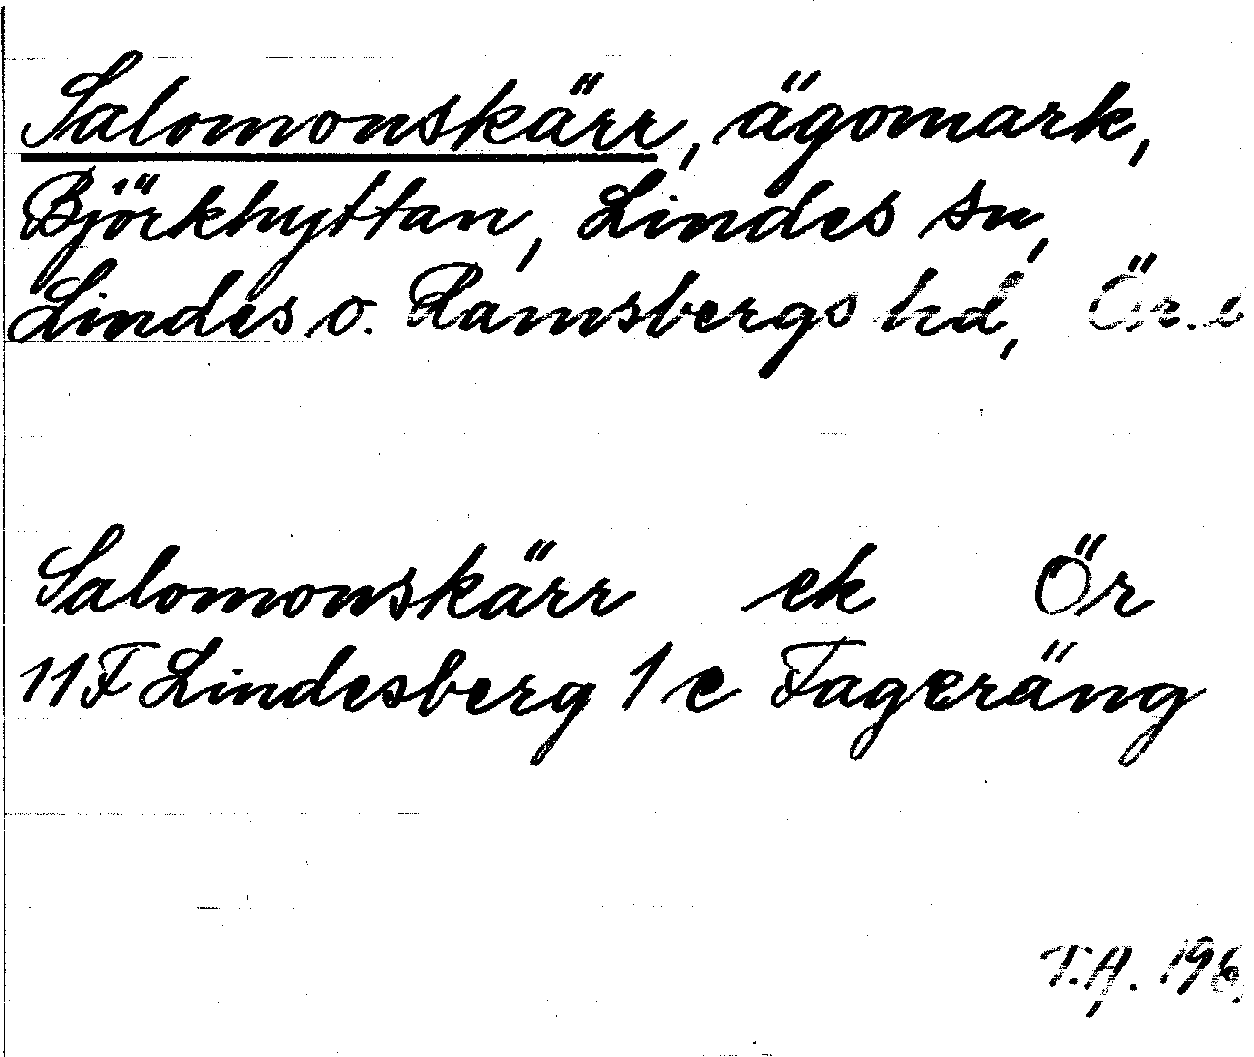 Salomonskärr, ägomark,
Björkhyttan, Lindes sn,
Lindes o. Ramsbergs hd, Ör.
Salomonskärr ek Ör
11F Lindesberg 1 c Fageräng
T.A. 196